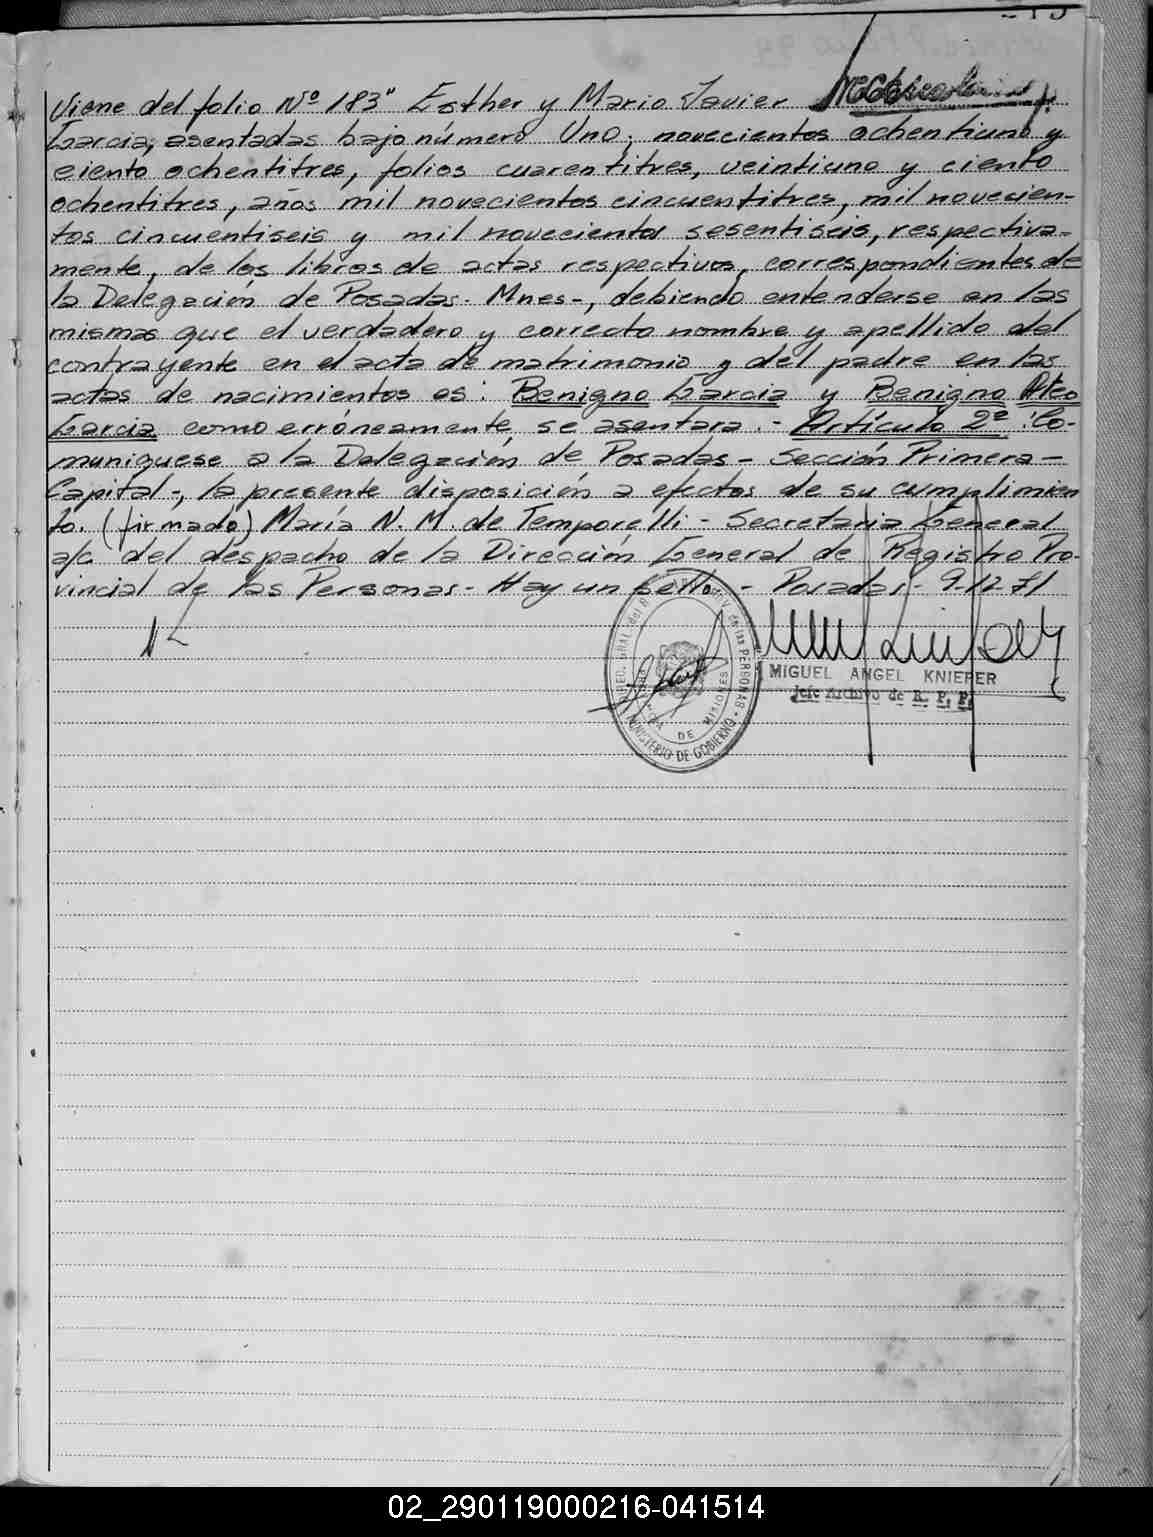 Viene del folio Nº 183" Esther y Mario Javier
Garcia, asentadas bajo número Uno; novecientos ochentiuno y
ciento ochentitres, folios cuarentitres, veintiuno y ciento
ochentitres, años mil novecientos cincuentitres, mil novecien-
tos cincuentiseis y mil novecientos sesentiseis, respectiva-
mente, de los libros de actas respectivos, correspondientes de
la Delegación de Posadas- Mnes-, debiendo entenderse en las
mismas que el verdadero y correcto nombre y apellido del
contrayente en el acta de matrimonio y del padre en las
actas de nacimientos es: Benigno Garcia y Benigno
Garcia como erróneamente, se asentara.- Artículo 2º: Co-
muniquese a la Delegación de Posadas - Sección Primera -
Capital-, la presente disposición a efectos de su cumplimien
to. (firmado) María N. M. de Temporelli - Secretaria General
a/c del despacho de la Dirección General de Registro Pro-
vincial de las Personas - Hay un sello - Posadas - 9-12-71
MIGUEL ANGEL KNIEPER
Jefe Archivo de R. P. P.
PERSONAS
DE MISIONES
MINISTERIO DE GOBIERNO
02_290119000216-041514